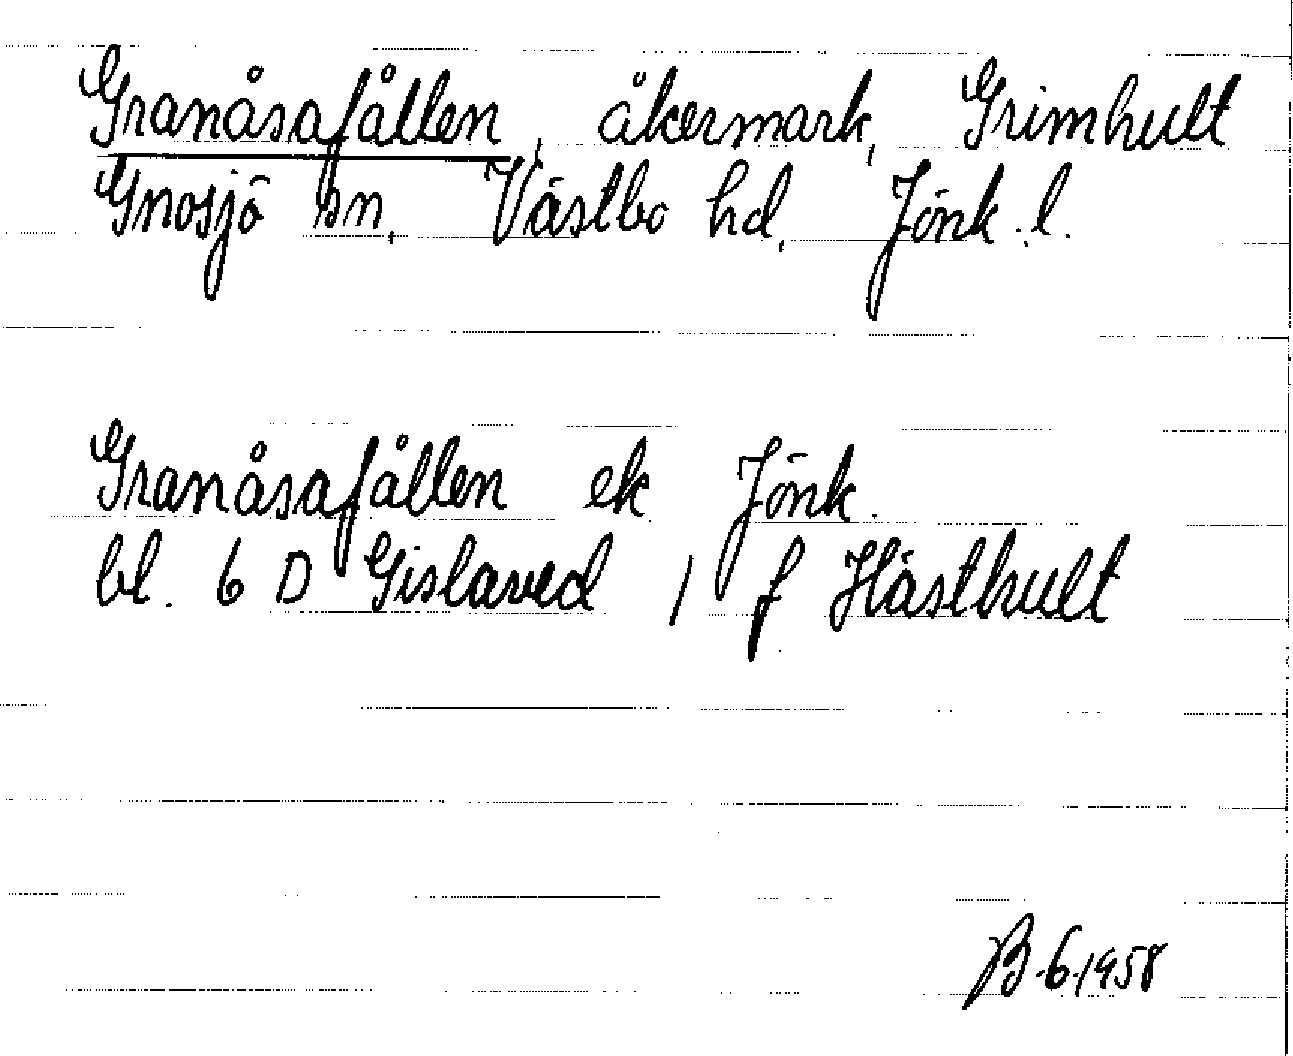 Granåsafållen, åkermark, Grimhult
Gnosjö sn, Västbo hd, Jönk. l.
Granåsafållen ek Jönk.
bl. 6 D Gislaved 1 f Hästhult
B. 6. 1958